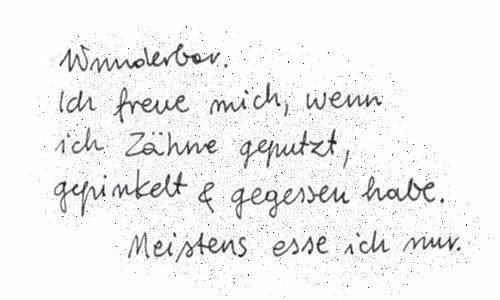 Wunderbar.
Ich freue mich, wenn
ich Zähne geputzt,
gepinkelt & gegessen habe.
Meistens esse ich nur.